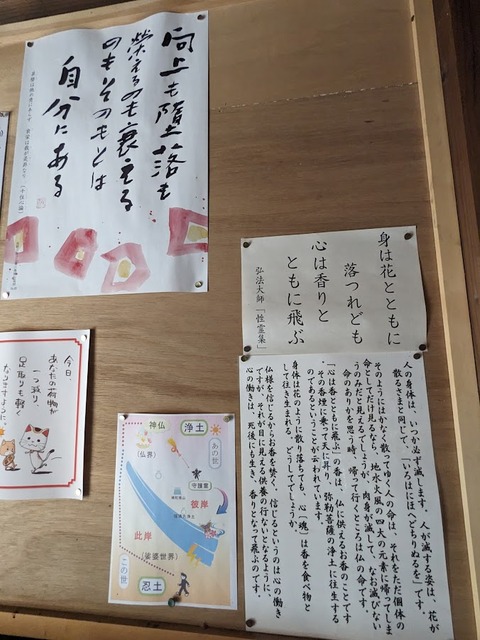 向上も堕落も
栄えるのも衰える
のもそのもとは
自分にある
(十住心論)
身は花とともに
落つれども
心は香りと
ともに飛ぶ
弘法大師「性霊集」
人の身体は、いつか必ず滅します。人が滅する姿は、花が
散るさまと同じで、「いろはにほへどちりぬるを」です。
そのようにはかなく散ってゆく人の命は、それをただ個体の
命としてだけ見るなら、地水火風の四大の元素に帰ってしま
うのみだと見えるでしょうが、肉身が滅して、なお滅びない
命のありかを思う時、帰って行くところは仏の命です。
「心は香とともに飛ぶ」の香は、仏に供えるお香のことです
。その香煙に乗って天に昇り、弥勒菩薩の浄土に往生する
のであるということが云われています。
身体は花のように散り落ちても、心(魂)は香を食べ物と
して往き生まれる。どうしてでしょうか。
仏様を信じるからお香を焚く、信じるというのは心の働き
ですが、それが目に見える供養の行ないとなるように、
心の働きは、死後にも生き、香りとなって飛ぶのです。
今日、
あなたの荷物が
一つ減り、
足取りも軽く
なりますように
神仏
浄土
(仏界)
あの世
守護霊
彼岸
此岸
(娑婆世界)
この世
忍土